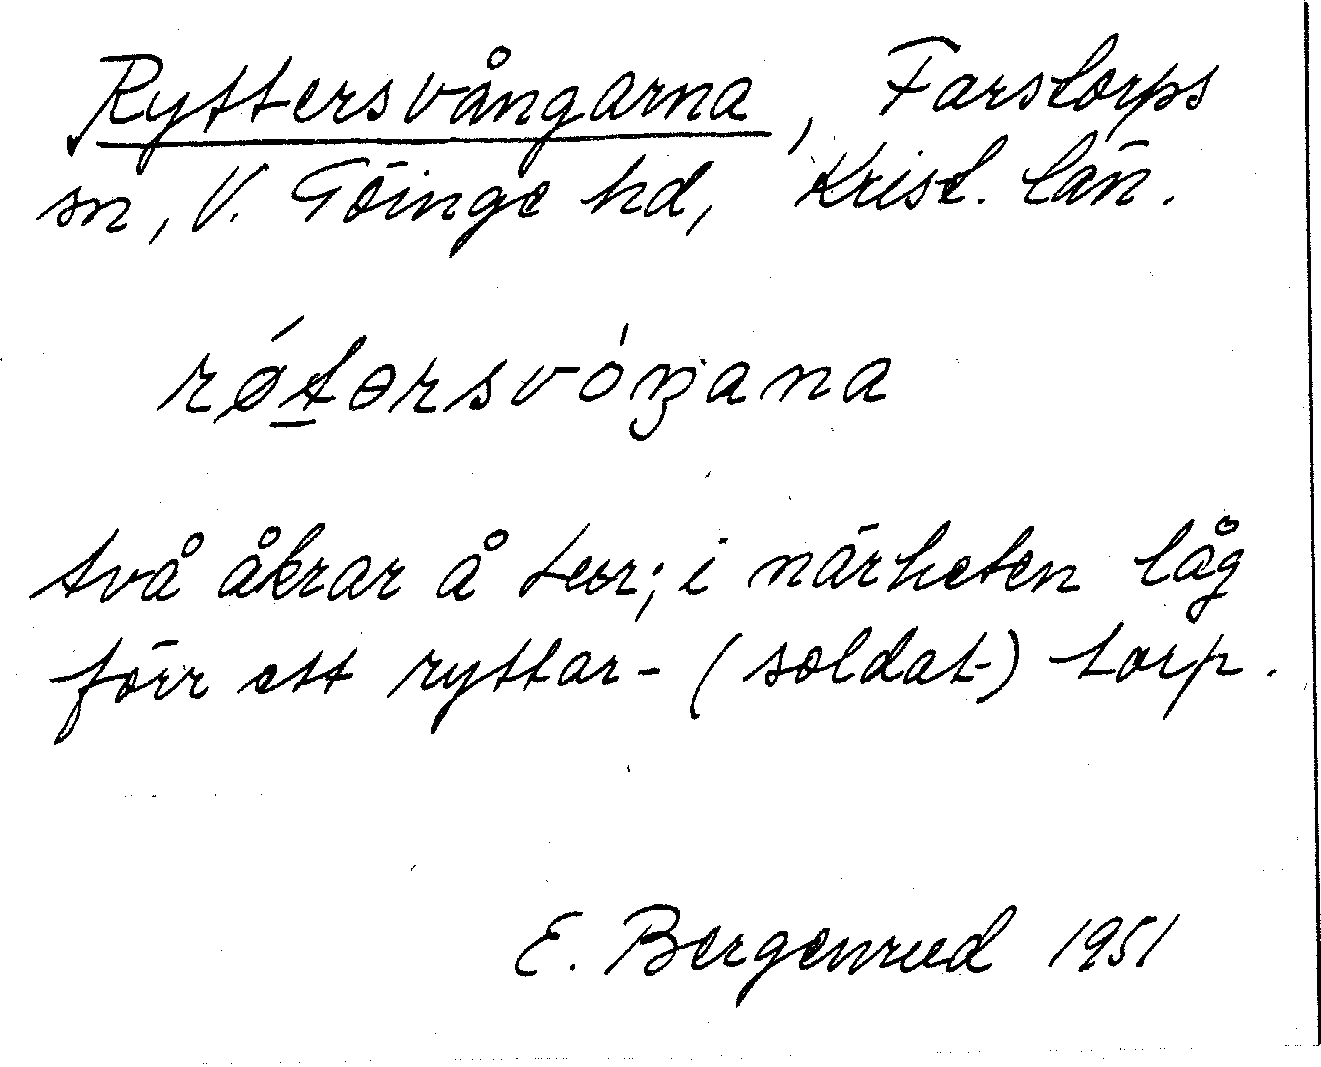 Ryttersvångarna, Farstorps
sn, V. Göinge hd, Krist. län.
røtərsvóŋana
två åkrar å ter; i närheten låg
förr ett ryttar- (soldat-) torp.
E. Bergenrud 1951